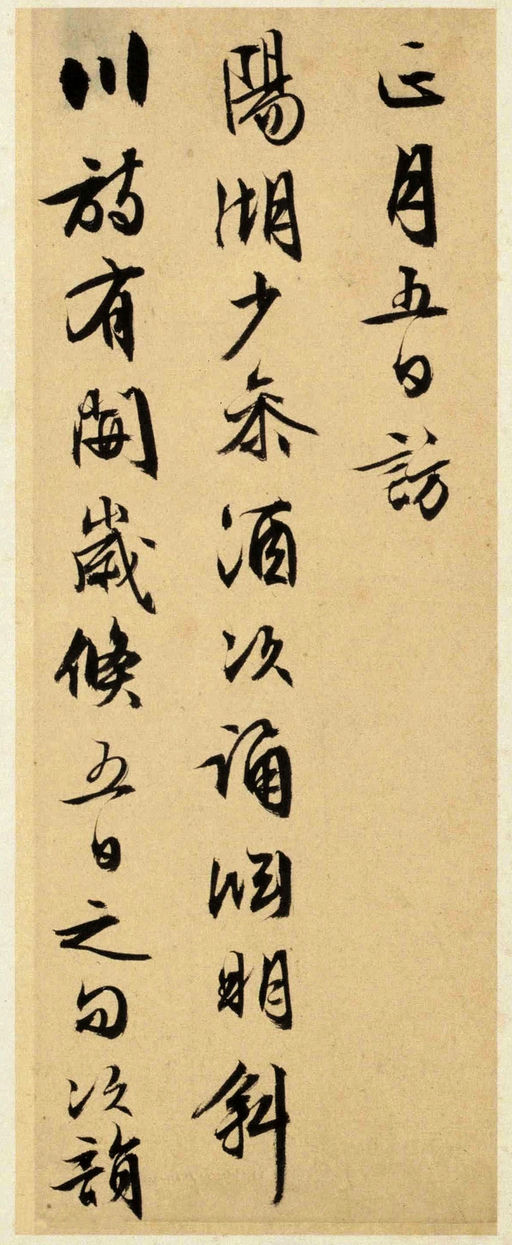 正月五日訪
陽湖少参酒次誦淵明斜
川詩有開歲倏五日之句次韻